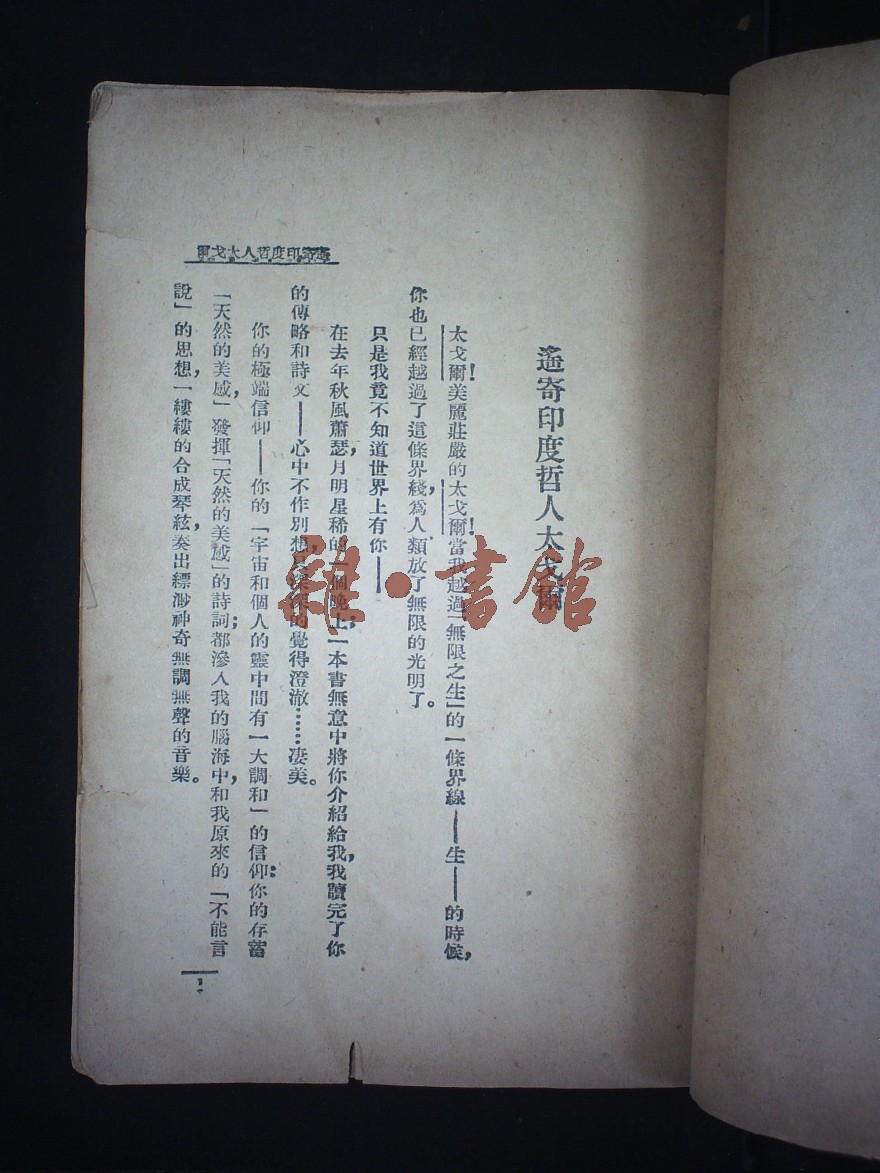 遙寄印度哲人太戈爾
太戈爾！美麗莊嚴的太戈爾！當我越過「無限之生」的一條界線——生——的時候，
你也已經越過了這條界綫，爲人類放了無限的光明了。
只是我竟不知道世界上有你——
在去年秋風蕭瑟，月明星稀的一個晚上；一本書無意中將你介紹給我，我讀完了你
的傳略和詩文——心中不作別想，只深深的覺得澄澈……凄美。
你的極端信仰——你的「宇宙和個人的靈中間有一大調和」的信仰：你的存蓄
「天然的美感」，發揮「天然的美感」的詩詞；都滲入我的腦海中，和我原來的「不能言
說」的思想，一縷縷的合成琴絃，奏出縹渺神奇無調無聲的音樂。
遙寄印度哲人太戈爾
1
雜·書館